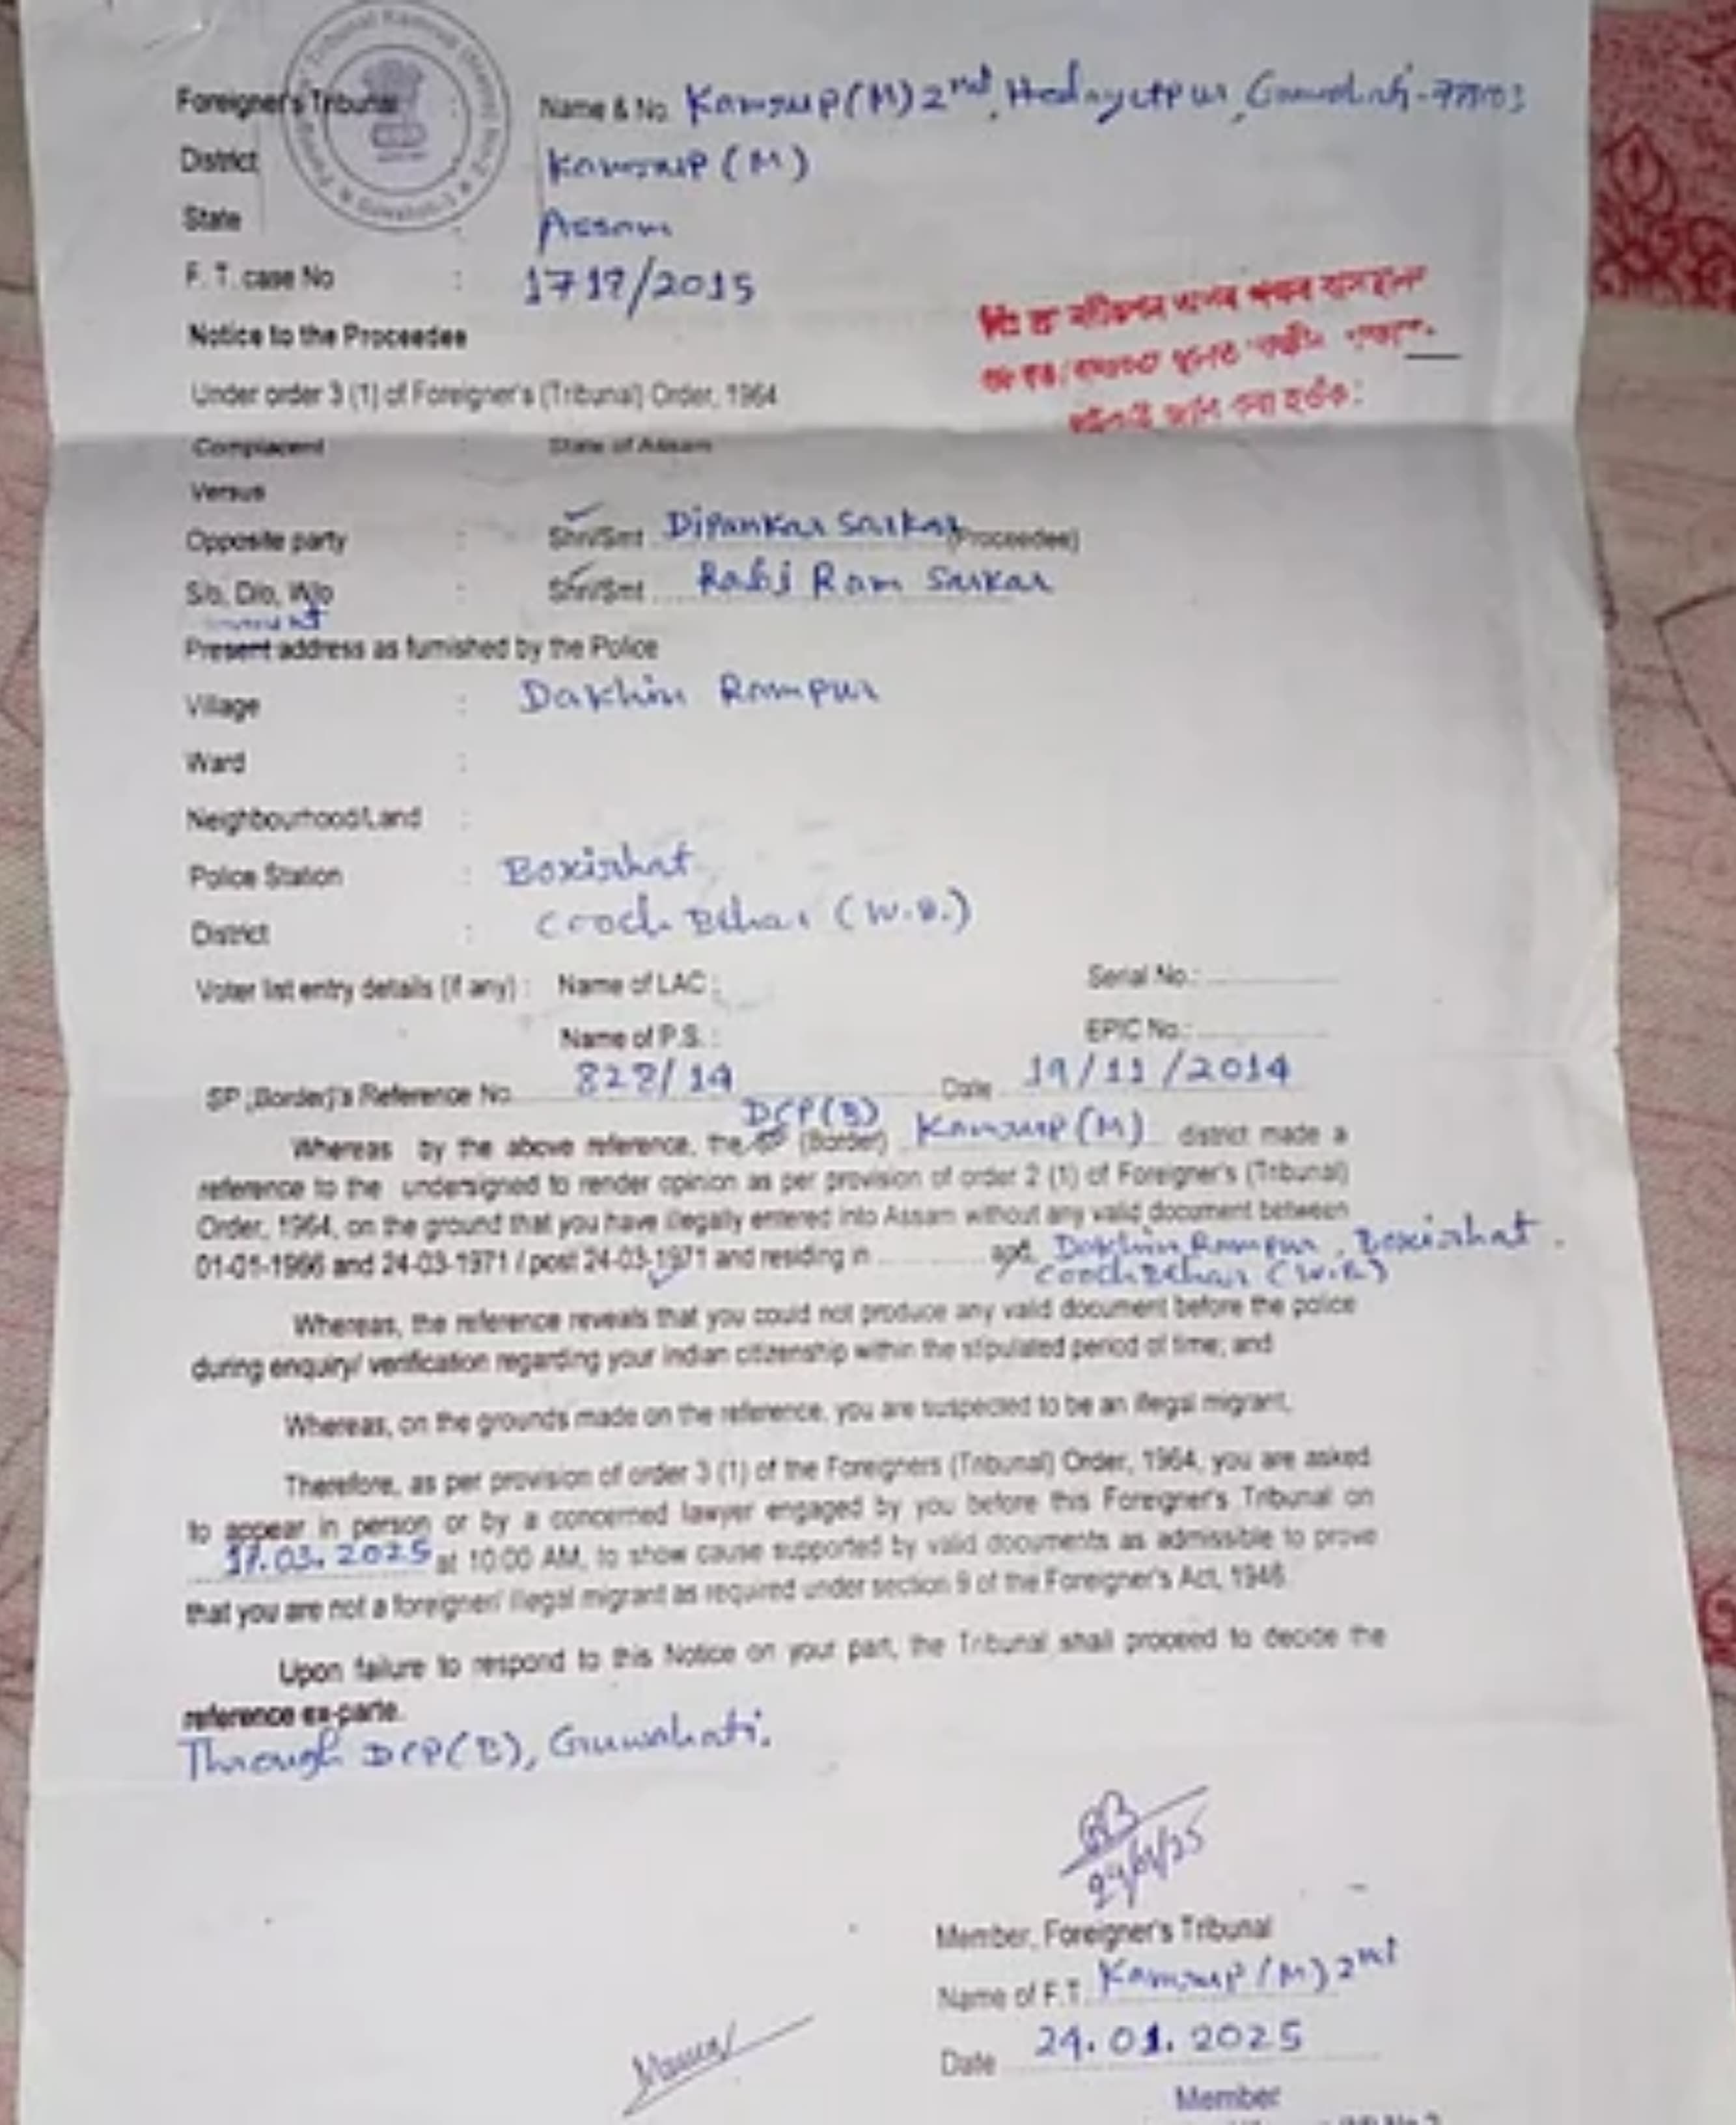 Foreigner's Tribunal : Name & No. Kamrup (M) 2nd, Hedayetpur, Guwahati-
District Kamrup (M)
State : Assam
F. T. case No : /2015
Notice to the Proceedee
Under order 3 (1) of Foreigner's (Tribunal) Order, 1964
Complacent : State of Assam
Versus
Opposite party : Shri/Smt Dipankar Sarkar (Proceedee)
S/o, D/o, W/o : Shri/Smt Rabi Ram Sarkar
Present address as furnished by the Police
Village : Dakhin Rampur
Ward :
Neighbourhood/Land :
Police Station : Boxirhat
District : Cooch Behar (W.B.)
Voter list entry details (if any) : Name of LAC : Serial No.:
Name of P.S. : EPIC No.:
SP (Border)'s Reference No. Date 19/11/2014
DCP(B)
Whereas by the above reference, the SP (Border) Kamrup (M) district made a
reference to the undersigned to render opinion as per provision of order 2 (1) of Foreigner's (Tribunal)
Order, 1964, on the ground that you have illegally entered into Assam without any valid document between
01-01-1966 and 24-03-1971 / post 24-03-1971 and residing in Dakhin Rampur, Boxirhat.
Cooch Behar (W.B.)
Whereas, the reference reveals that you could not produce any valid document before the police
during enquiry/ verification regarding your Indian citizenship within the stipulated period of time; and
Whereas, on the grounds made on the reference, you are suspected to be an illegal migrant,
Therefore, as per provision of order 3 (1) of the Foreigners (Tribunal) Order, 1964, you are asked
to appear in person or by a concerned lawyer engaged by you before this Foreigner's Tribunal on
17.03.2025 at 10:00 AM, to show cause supported by valid documents as admissible to prove
that you are not a foreigner/ illegal migrant as required under section 9 of the Foreigner's Act, 1946.
Upon failure to respond to this Notice on your part, the Tribunal shall proceed to decide the
reference ex-parte.
Through DCP(B), Guwahati.
Member, Foreigner's Tribunal
Name of F.T. Kamrup (M) 2nd
Date 24.01.2025
Member